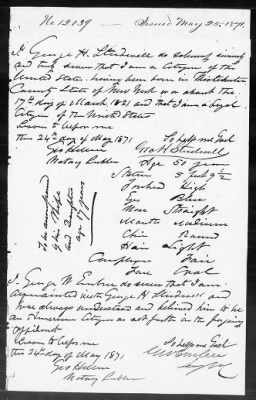 No 12039 Issued May 25, 1871.
I George H. Studwell do solemnly sincerely
and truly swear that I am a Citizen of the
United States. having been born in Westchester
County State of New York on or about the
17th day of March, 1821 and that I am a loyal
Citizen of the United States
Sworn to before me
this 24th day of May 1871
Geo
Notary Public
So help me God
Geo H. Studwell
Age 50 years
Stature 5 feet 9 1/2
Forehead High
Eyes Blue
Nose Straight
Mouth Medium
Chin Round
Hair Light
Complexion Fair
Face Oval
To be accompanied
by his Wife
and Daughter
age 17 years
I George W Embree do swear that I am
acquainted with George H Studwell and
have always understood and believed him to be
an American Citizen as set forth in the foregoing
affidavit
Sworn to before me
this 24 day of May 1871
Geo
Notary Public
So help me God
GW Embree